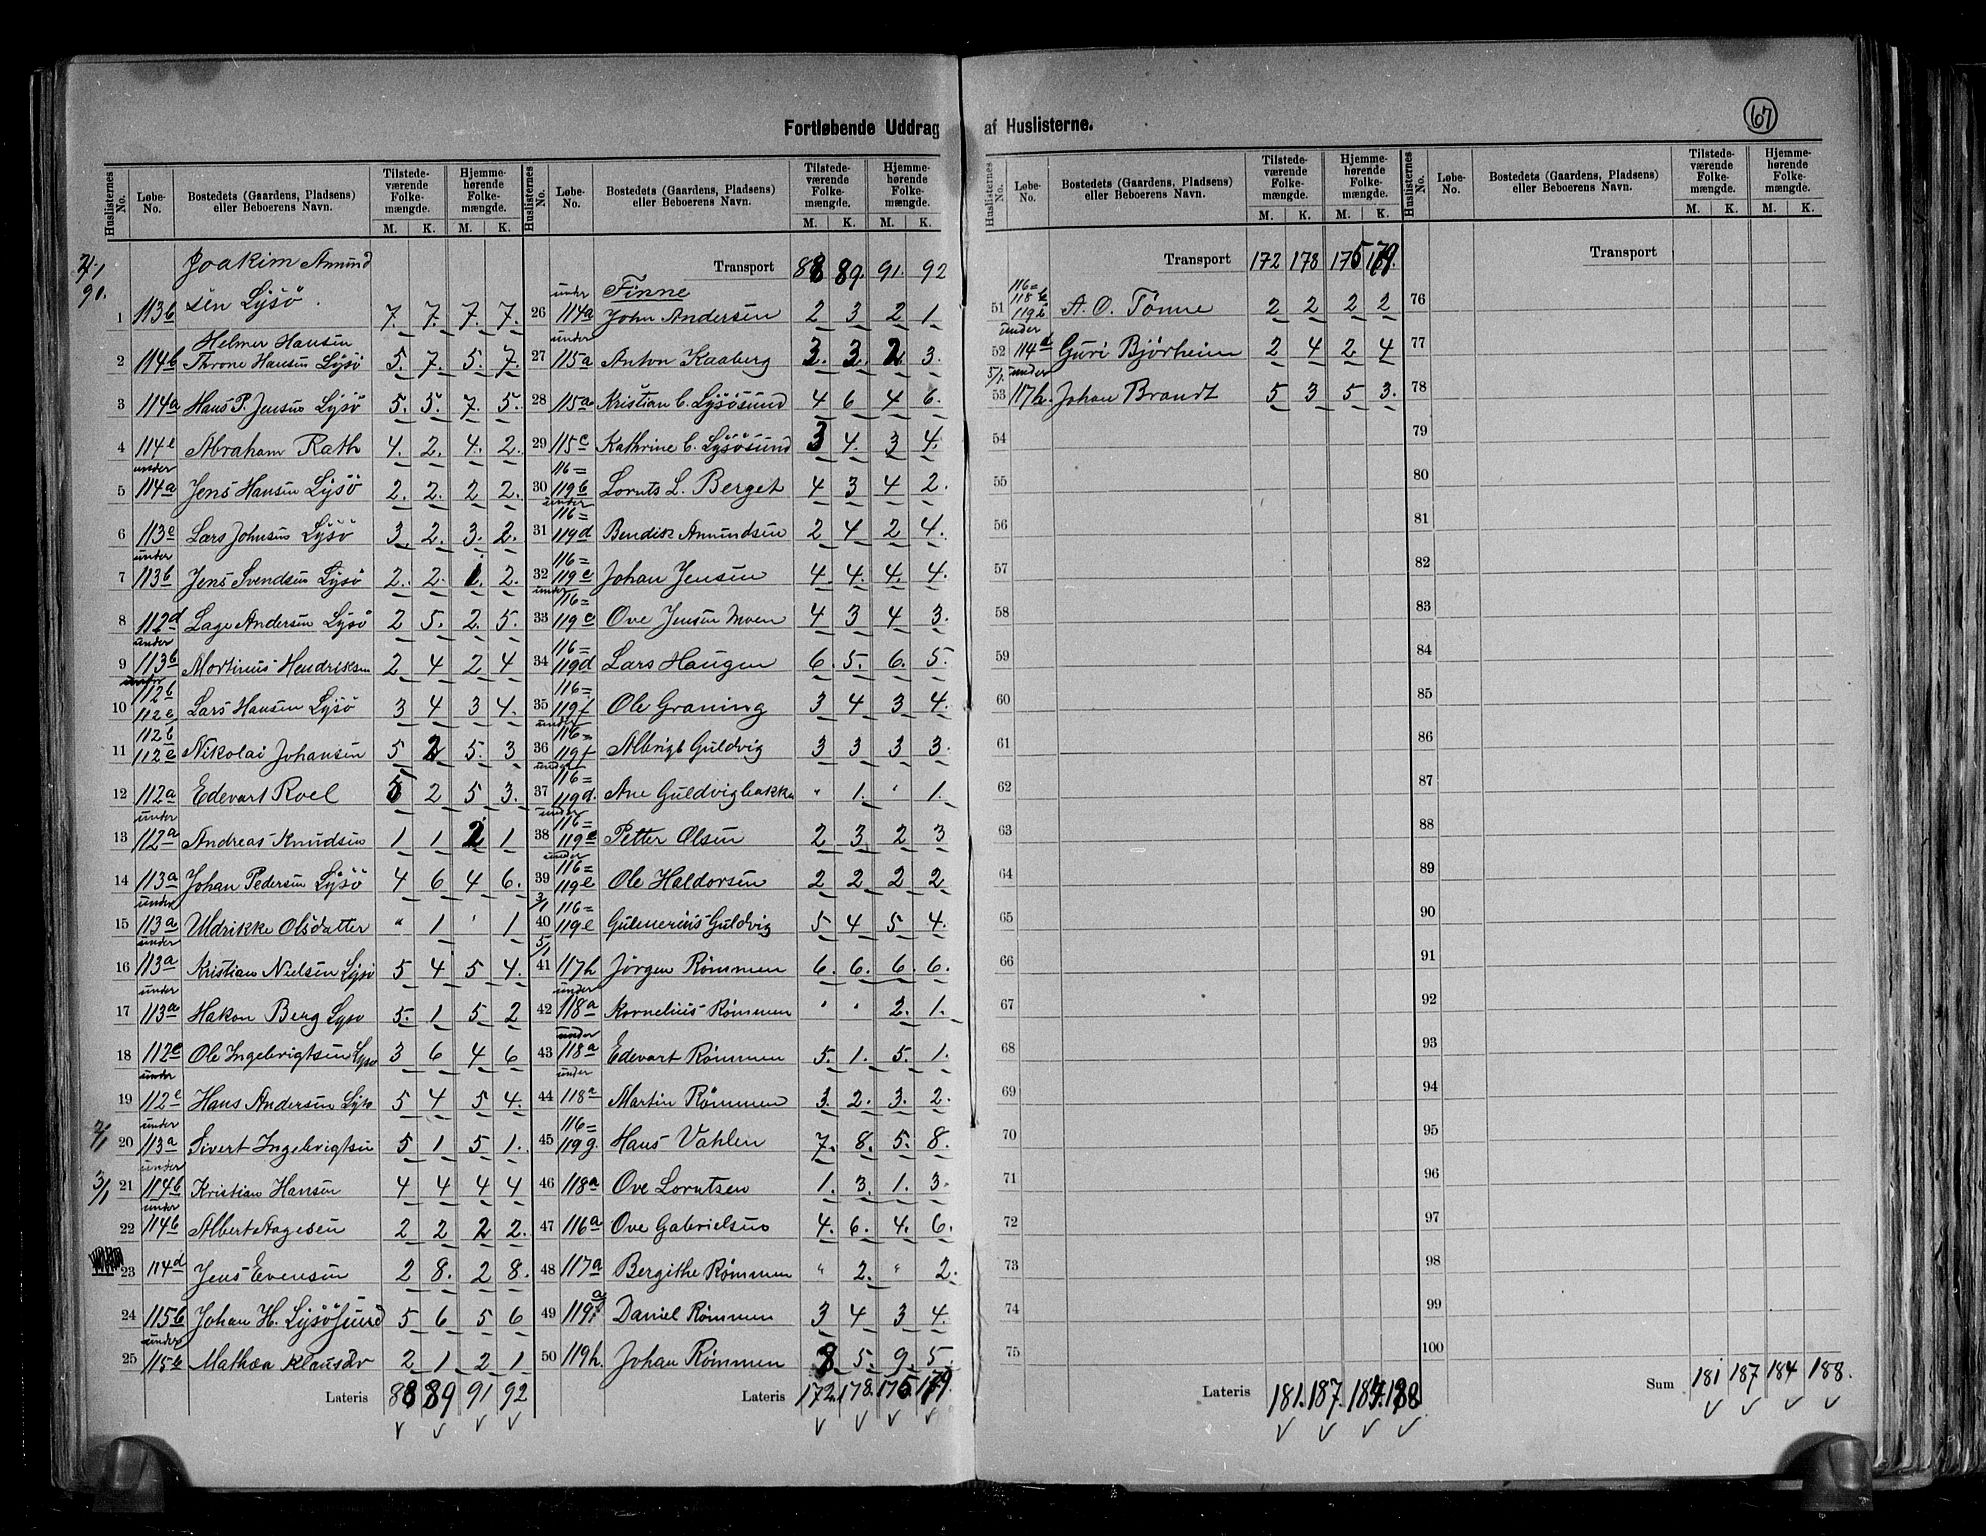 Fortløbende Uddrag af Huslisterne.
67
Huslisternes No. Løbe-No. Bostedets (Gaardens, Pladsens) eller Beboerens Navn. Tilstedeværende Folkemængde. M. K. Hjemmehørende Folkemængde. M. K.
2/1 90. Joakim Amund
1 113b sen Lysö. 7. 7. 7. 7.
Helmer Hansen
2 114b Throne Hansen Lysö 5. 7. 5. 7.
3 114a Hans P. Jensen Lysö 5. 5. 7. 5.
4 114e Abraham Rath 4. 2. 4. 2.
5 under 114a Jens Hansen Lysö 2. 2. 2 2.
6 113c Lars Johnsen Lysö 3. 2. 3. 2.
7 under 113b Jens Svendsen Lysö 2. 2. 1. 2.
8 112d Lage Andersen Lysö 2 5. 2. 5.
9 under 113b Mortinus Hendriksen 2 4 2 4
10 under 112b 112c Lars Hansen Lysö 3 4 3 4.
11 112b 112c Nikolai Johansen 5 2 5. 3
12 112a Edevart Roel 5 2 5 3.
13 under 112a Andreas Knudsen 1 1 2 1
14 113a Johan Pedersen Lysö 4 6 4 6.
15 under 113a Uldrikke Olsdatter " 1 ' 1
16 under 113a Kristian Nielsen Lysö 5 4 5 4.
17 under 113a Hakon Berg Lyso 5. 1 5 2
18 112c Ole Ingebrigtsen Lyso 3 6 4 6
19 under 112c Hans Andersen Lyso 5 4 5 4.
2/1 20 under 113a Sivert Ingebrigtsen 5 1 5 1.
3/1 21 under 114b Kristian Hansen 4 4 4 4
22 under 114b Albert Aagesen 2 2 2 2.
23 114d Jens Evensen 2 8. 2 8.
24 115b Johan H. Lysösund 5 6 5 6
25 under 115b Mathea Klausdr 2 1 2 1
Lateris 88 89 91 92
Huslisternes No. Løbe-No. Bostedets (Gaardens, Pladsens) eller Beboerens Navn. Tilstedeværende Folkemængde. M. K. Hjemmehørende Folkemængde. M. K.
Transport 88 89. 91. 92
Finne
26 under 114a John Andersen 2 3 2 1.
27 under 115a Anton Kaaberg 3. 3. 2. 3.
28 115a Kristian C. Lysösund 4 6 4 6.
29 115c Kathrine C. Lysösund 3 4. 3 4.
30 116= 119b Lornts L. Berget 4 3 4 2.
31 under 116= 119d Bendik Amundsen 2 4 2 4.
32 116= 119c Johan Jensen 4. 4. 4. 4.
33 under 116= 119c Ove Jensen Moen 4 3 4 3.
34 116= 119d Lars Haugen 6. 5. 6. 5.
35 116= 119f Ole Graning 3 4 3 4.
36 under 116= 119f Albrigt Guldvig 3 3 3 3.
37 under 116= 119d. Ane Guldvigbakke " 1. ' 1.
38 under 116= 119e Petter Olsen 2 3 2 3
39 under 116= 119e Ole Haldorsen 2 2 2 2
3/1 40 116= 119e Gulmerius Guldvig 5 4 5 4.
5/1 41 117h Jörgen Rømmen 6. 6. 6. 6.
42 under 118a Kornelius Rømmen ' ' 2. 1.
43 under 118a Edevart Rømmen 5. 1. 5. 1.
44 under 118a Martin Rømmen 3. 2. 3. 2.
45 116= 119g. Hans Vahlen 7. 8. 5. 8.
46 118a Ove Lorntsen 1. 3. 1. 3.
47 116a Ove Gabrielsen 4. 6. 4. 6.
48 117a Bergithe Rømmen " 2. " 2.
49 119 Daniel Rømmen 3 4 3 4.
50 119h. Johan Rømmen 8 5. 9. 5
Lateris 172. 178. 175 179.
Huslisternes No. Løbe-No. Bostedets (Gaardens, Pladsens) eller Beboerens Navn. Tilstedeværende Folkemængde. M. K. Hjemmehørende Folkemængde. M. K.
Transport 172 178 175 179.
51 116= 118b 119i A. O. Tønne 2 2 2 2
52 under 114d Guri Bjørheim 2 4 2 4
5/1 53 under 117h. Johan Brandt 5 3 5 3.
54
55
56
57
58
59
60
61
62
63
64
65
66
67
68
69
70
71
72
73
74
75
Lateris 181. 187. 184. 188
Huslisternes No. Løbe-No. Bostedets (Gaardens, Pladsens) eller Beboerens Navn. Tilstedeværende Folkemængde. M. K. Hjemmehørende Folkemængde. M. K.
Transport
76
77
78
79
80
81
82
83
84
85
86
87
88
89
90
91
92
93
94
95
96
97
98
99
100
Sum 181 187 184 188.